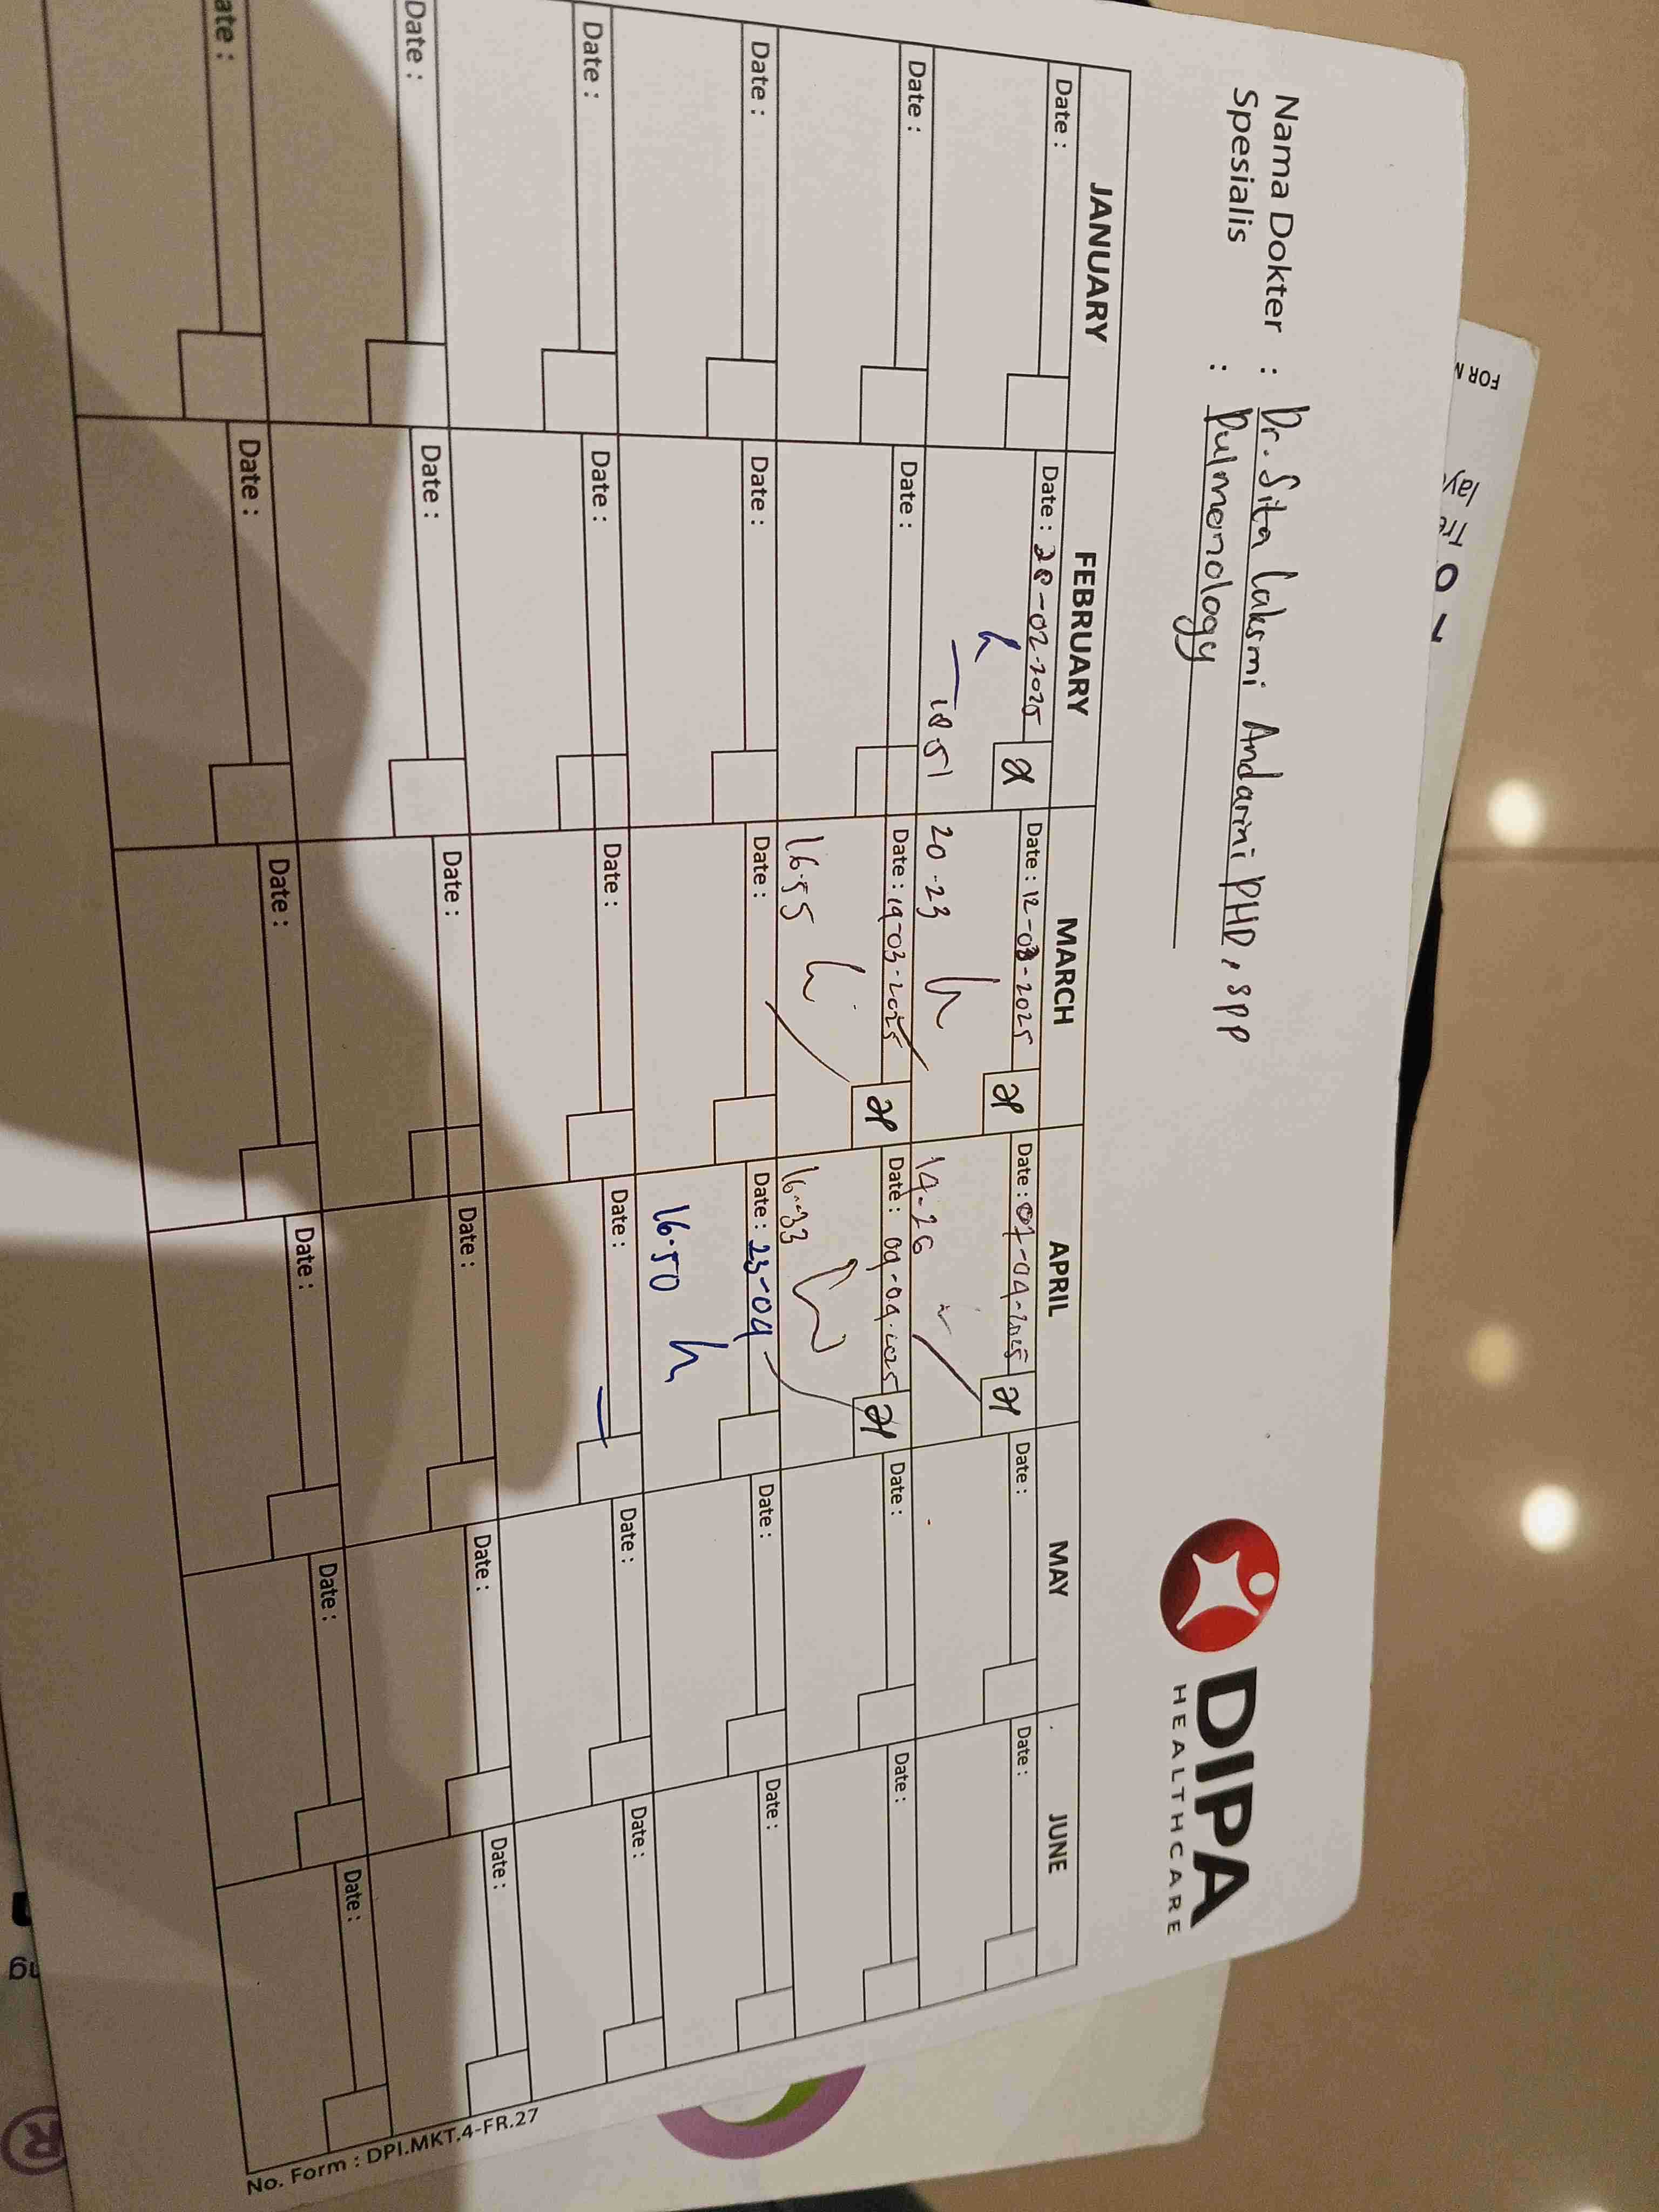 Nama Dokter : Dr. Sita Laksmi Andarini PHD, SPP
Spesialis : Pulmonology
DIPA
HEALTHCARE
JANUARY FEBRUARY MARCH APRIL MAY JUNE
Date : Date : 28-02-2025 Date : 12-03-2025 Date : 07-04-2025 Date : Date :
18.51 20-23 14-26
Date : Date : Date : 19-03-2025 Date : 09-04-2025 Date : Date :
16.55 16-33
Date : Date : Date : Date : 23-04 Date : Date :
16.50
Date : Date : Date : Date : Date : Date :
Date : Date : Date : Date : Date : Date :
ate : Date : Date : Date : Date : Date :
No. Form : DPI.MKT.4-FR.27
FOR
®